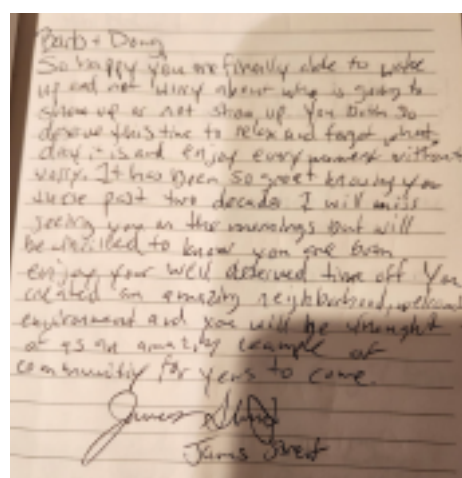 Barb + Doug
So happy you are finally able to wake
up and not worry about who is going to
show up or not show up You both so
deserve this time to relax and forget what
day it is and enjoy every moment without
worry. It has been so great knowing you
these past two decades I will miss
seeing you in the mornings but will
be thrilled to know you are both
enjoy your well deserved time off You
created an amazing neighborhood, welcome
environment and you will be thought
of as an amazing example of
community for years to come.
James